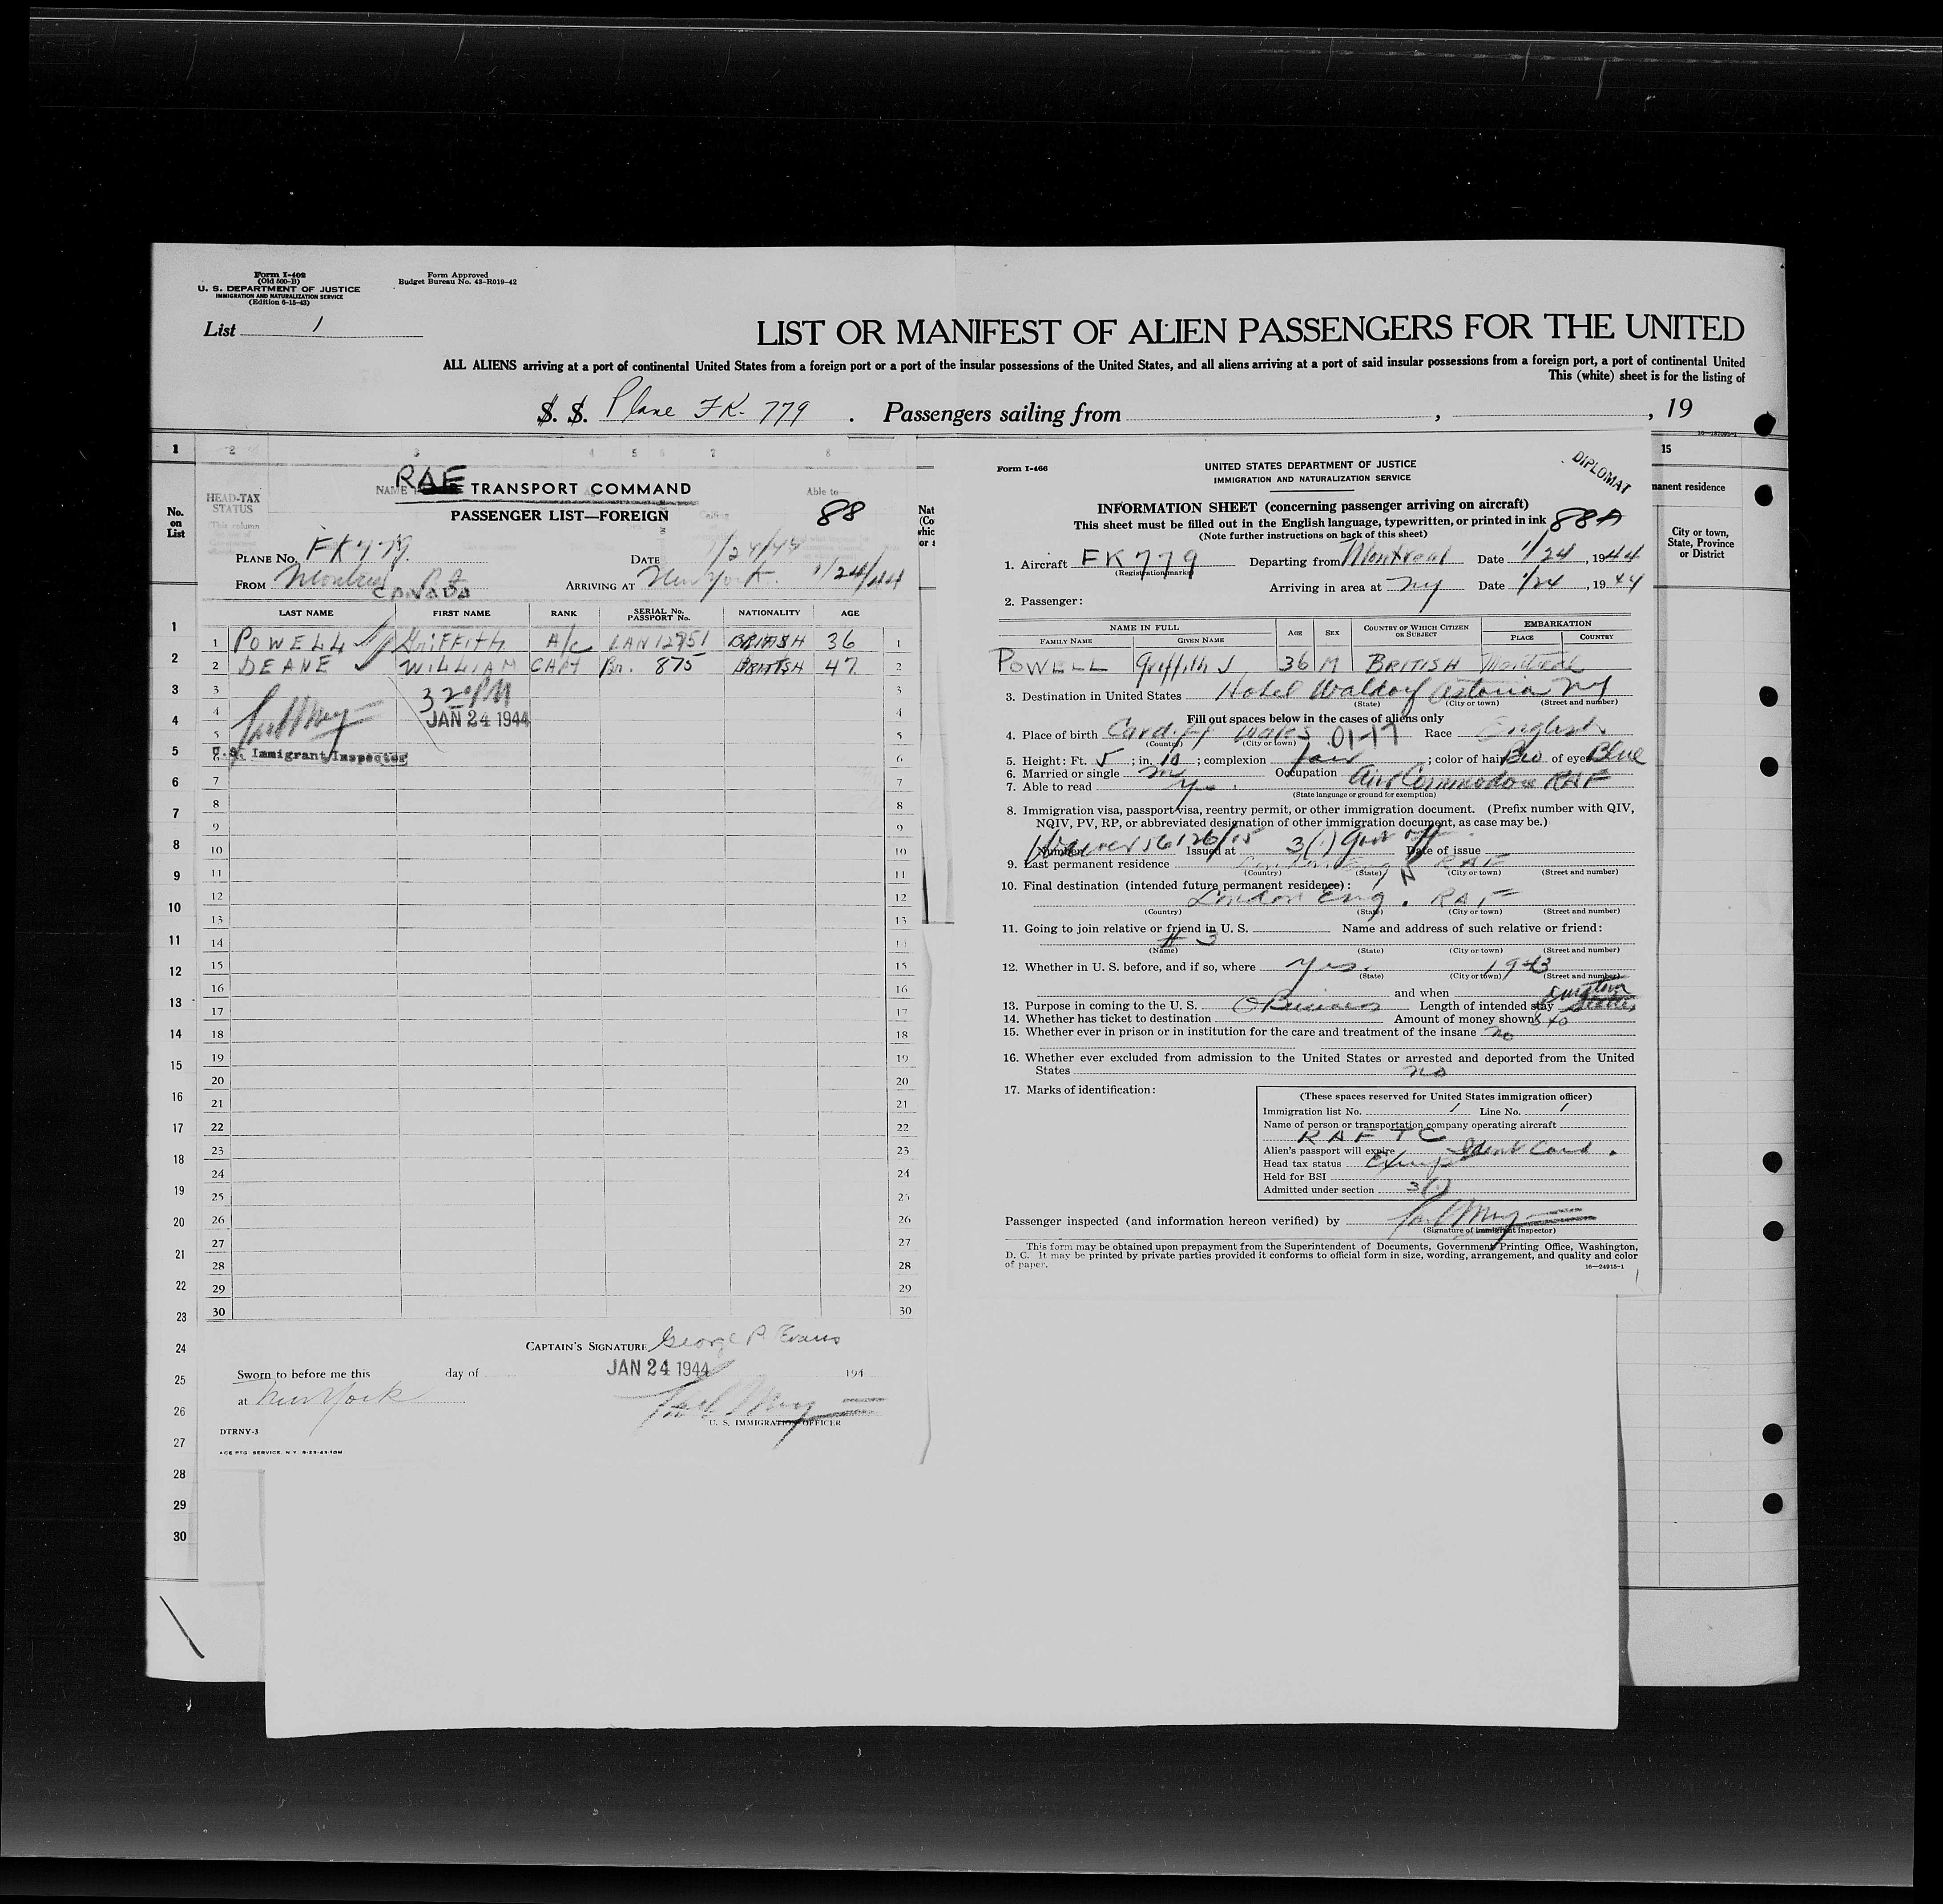 Form I-402
(Old 500-B)
U. S. DEPARTMENT OF JUSTICE
IMMIGRATION AND NATURALIZATION SERVICE
(Edition 6-15-43)
Form Approved
Budget Bureau No. 43-R019-42
List 1
LIST OR MANIFEST OF ALIEN PASSENGERS FOR THE UNITED
ALL ALIENS arriving at a port of continental United States from a foreign port or a port of the insular possessions of the United States, and all aliens arriving at a port of said insular possessions from a foreign port, a port of continental United
This (white) sheet is for the listing of
S. S. Plane FK-779 . Passengers sailing from , , 19
1 2 3 4 5 6 7 8
HEAD-TAX
STATUS
No.
on
List
RAF TRANSPORT COMMAND
PASSENGER LIST—FOREIGN
Able to
88
PLANE No. FK779. DATE 1/24/44
FROM Montreal CANADA ARRIVING AT New York. 1/24/44
LAST NAME FIRST NAME RANK SERIAL No. PASSPORT No. NATIONALITY AGE
1 POWELL Griffith A/C CAN 12951 BRITISH 36 1
2 DEANE WILLIAM CAPT Br. 875 BRITISH 47 2
3 3
3 20 PM
4 4
JAN 24 1944
5 5
U.S. Immigrant Inspector
6 6
7 7
8 8
9 9
10 10
11 11
12 12
13 13
14 14
15 15
16 16
17 17
18 18
19 19
20 20
21 21
22 22
23 23
24 24
25 25
26 26
27 27
28 28
29 29
30 30
CAPTAIN'S SIGNATURE George P. Evans
JAN 24 1944
Sworn to before me this day of 194
at New York
U. S. IMMIGRATION OFFICER
DTRNY-3
ACE PTG. SERVICE, N.Y. 8-23-43-10M
1
2
3
4
5
6
7
8
9
10
11
12
13
14
15
16
17
18
19
20
21
22
23
24
25
26
27
28
29
30
Form I-466
UNITED STATES DEPARTMENT OF JUSTICE
IMMIGRATION AND NATURALIZATION SERVICE
DIPLOMAT
INFORMATION SHEET (concerning passenger arriving on aircraft)
This sheet must be filled out in the English language, typewritten, or printed in ink
88A
(Note further instructions on back of this sheet)
1. Aircraft FK779 Departing from Montreal Date 1/24, 1944
(Registration marks)
Arriving in area at NY Date 1/24, 1944
2. Passenger:
NAME IN FULL AGE SEX COUNTRY OF WHICH CITIZEN OR SUBJECT EMBARKATION
FAMILY NAME GIVEN NAME PLACE COUNTRY
POWELL Griffith J 36 M BRITISH Montreal
3. Destination in United States Hotel Waldorf Astoria NY
(State) (City or town) (Street and number)
Fill out spaces below in the cases of aliens only
4. Place of birth Cardiff Wales 01-17 Race English
(Country) (City or town)
5. Height: Ft. 5; in. 10; complexion fair; color of hair Bro of eyes Blue
6. Married or single m Occupation Air Commodore RAF
7. Able to read Yes.
(State language or ground for exemption)
8. Immigration visa, passport visa, reentry permit, or other immigration document. (Prefix number with QIV,
NQIV, PV, RP, or abbreviated designation of other immigration document, as case may be.)
Number Issued at 3(1) Gov off Date of issue
9. Last permanent residence RAF
(Country) (State) (City or town) (Street and number)
10. Final destination (intended future permanent residence):
London Eng. RAF
(Country) (State) (City or town) (Street and number)
11. Going to join relative or friend in U. S. Name and address of such relative or friend:
# 3
(Name) (State) (City or town) (Street and number)
12. Whether in U. S. before, and if so, where Yes. 1943
(State) (City or town) (Street and number)
and when
13. Purpose in coming to the U. S. O Business Length of intended stay
14. Whether has ticket to destination Amount of money shown $40
15. Whether ever in prison or in institution for the care and treatment of the insane no
16. Whether ever excluded from admission to the United States or arrested and deported from the United
States no
17. Marks of identification:
(These spaces reserved for United States immigration officer)
Immigration list No. 1 Line No. 1
Name of person or transportation company operating aircraft
RAFTC
Alien's passport will expire Ident Card.
Head tax status Exmp
Held for BSI
Admitted under section 3(1)
Passenger inspected (and information hereon verified) by
(Signature of Immigrant Inspector)
This form may be obtained upon prepayment from the Superintendent of Documents, Government Printing Office, Washington,
D. C. It may be printed by private parties provided it conforms to official form in size, wording, arrangement, and quality and color
of paper.
16—24915-1
15
manent residence
City or town,
State, Province
or District